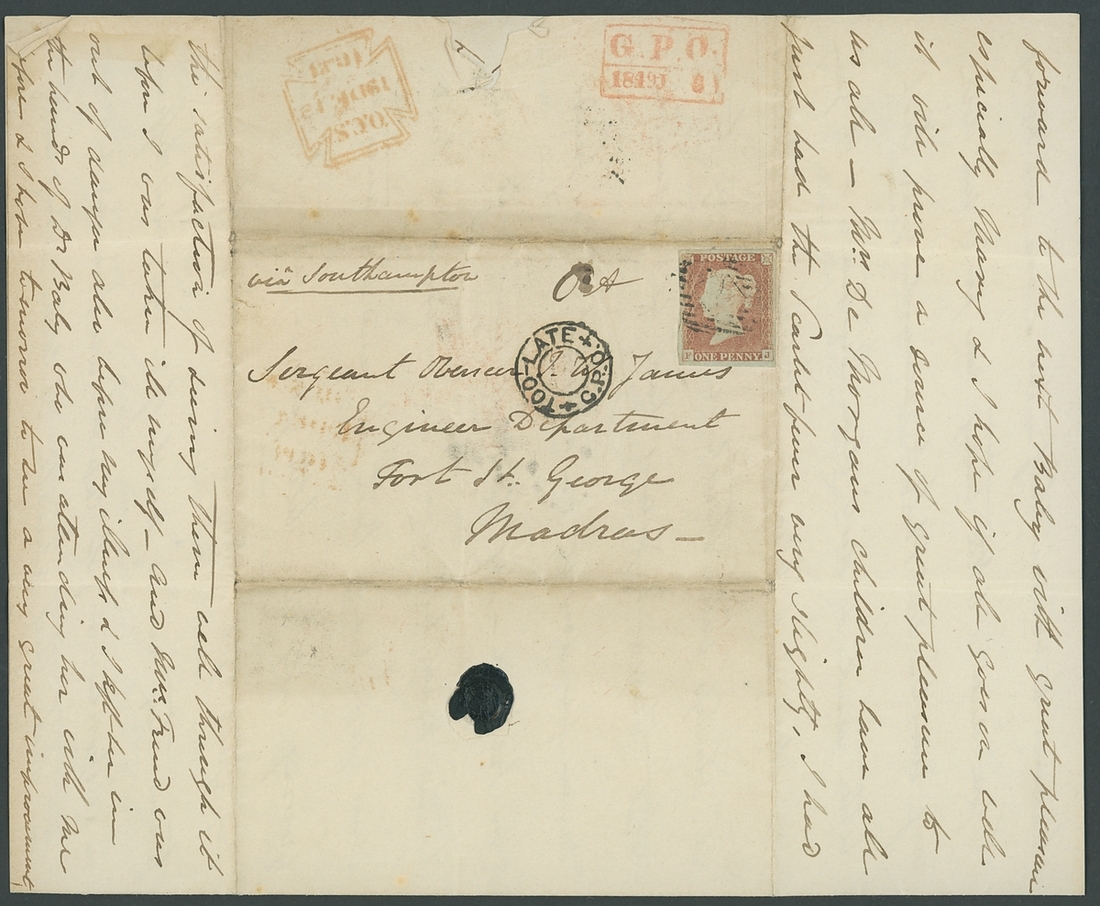 forward to the next Baby with great pleasure
especially Nanny & I hope if all goes on well
it will prove a source of great pleasure to
us all — Mrs De Morgans children have all
just had the Scarlet fever very slightly, I had
the satisfaction of seeing them well through it
before I was taken ill myself — and Mrs. Frend was
out of danger also before my illness & I left her in
the hands of Dr Baly who is attending her with me
& I hope tomorrow to see a very great improvement
G.P.O.
1849
via Southampton
POSTAGE
ONE PENNY
F J
TOO-LATE + G.P.O. +
Sergeant James
Engineer Department
Fort St. George
Madras —